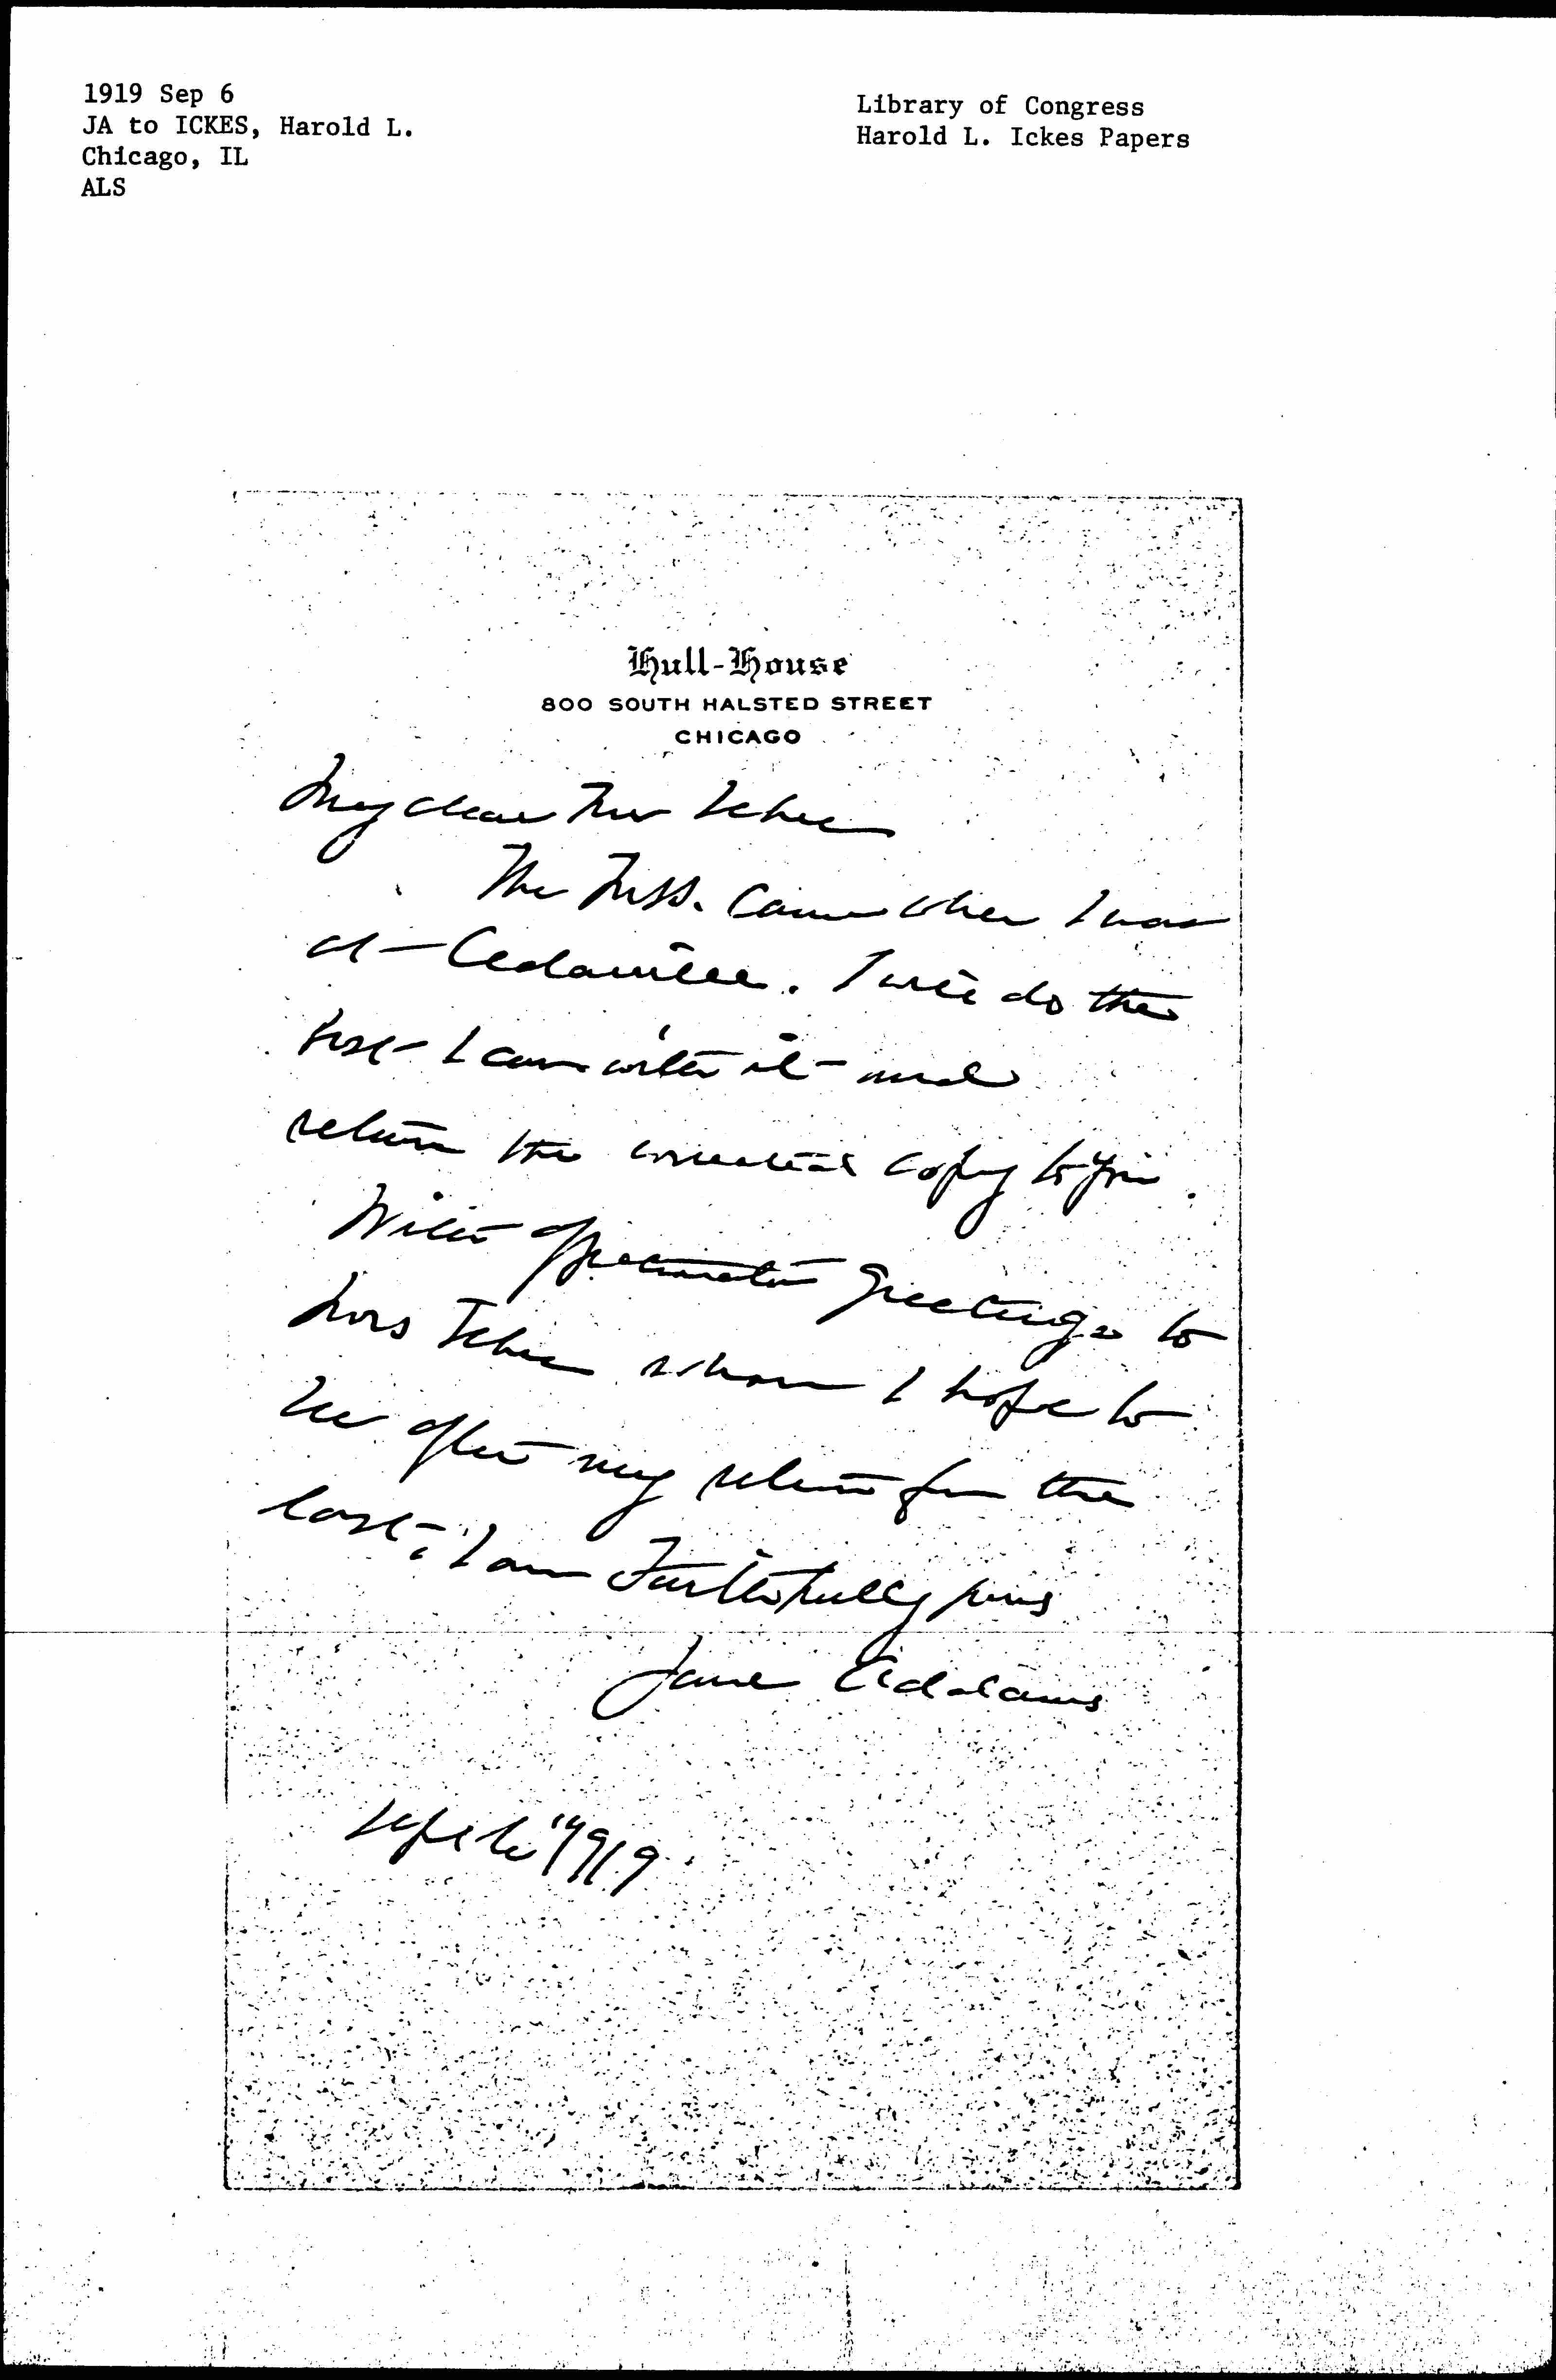 1919 Sep 6
JA to ICKES, Harold L.
Chicago, IL
ALS
Library of Congress
Harold L. Ickes Papers
Hull-House
800 SOUTH HALSTED STREET
CHICAGO
My dear Mr Ickes
The Mss. came when I was
at Cedarville. I will do the
best I can with it and
return the corrected copy to you.
With affectionate greetings to
Mrs Ickes whom I hope to
see after my return from the
East, I am Faithfully yours
Jane Addams
Sept 6" 1919